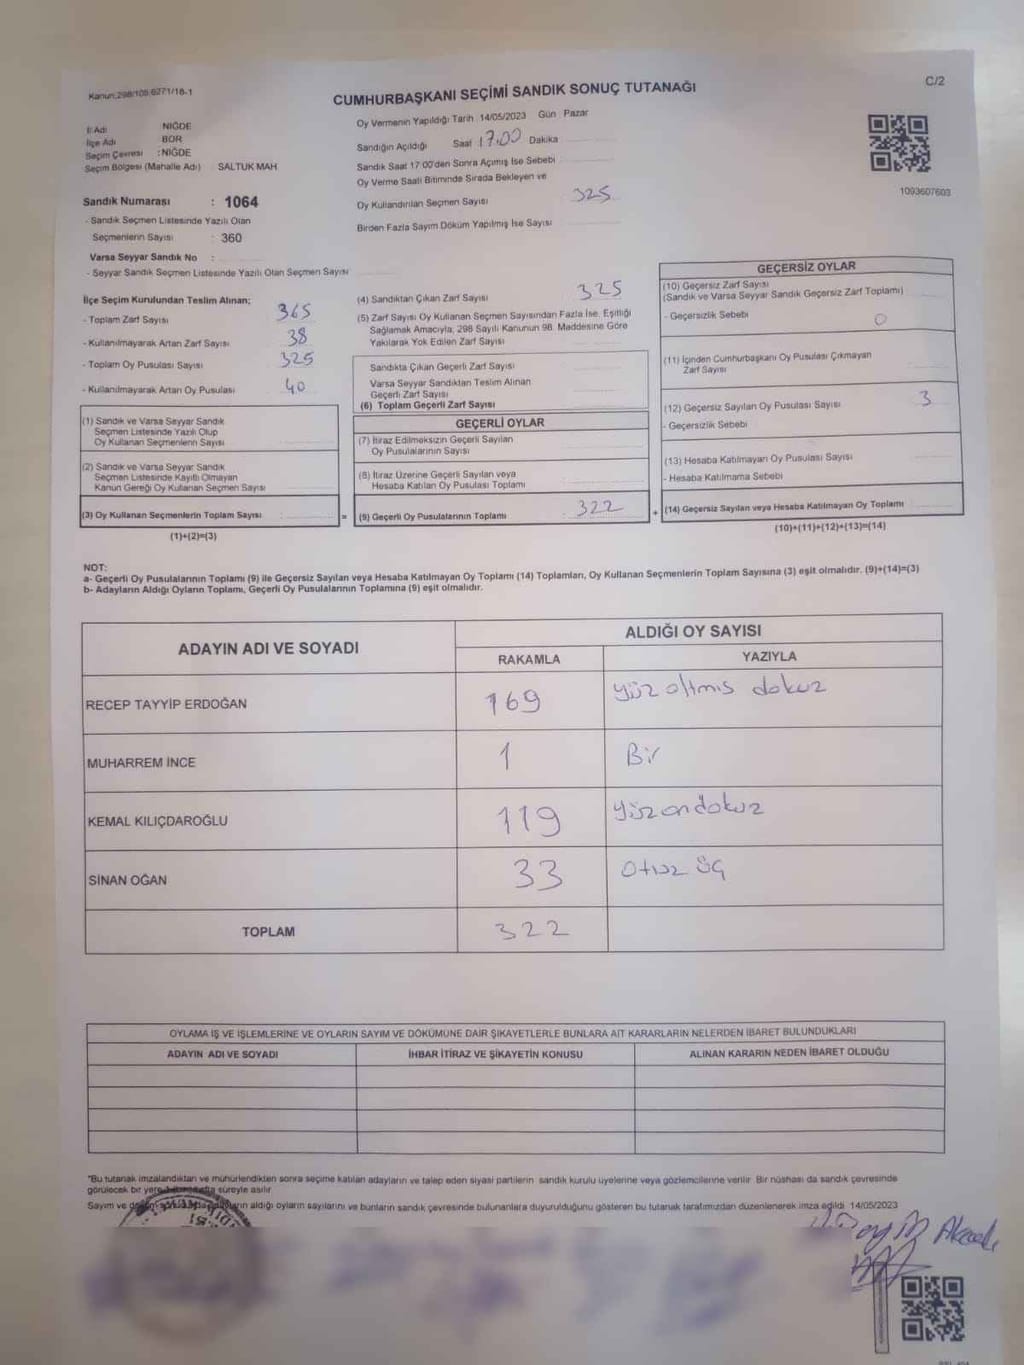 Kanun:298/105,6271/18-1
C/2
CUMHURBAŞKANI SEÇİMİ SANDIK SONUÇ TUTANAĞI
İl Adı NİĞDE
İlçe Adı BOR
Seçim Çevresi :NİĞDE
Seçim Bölgesi (Mahalle Adı) SALTUK MAH
Sandık Numarası : 1064
- Sandık Seçmen Listesinde Yazılı Olan
Seçmenlerin Sayısı : 360
Varsa Seyyar Sandık No :
- Seyyar Sandık Seçmen Listesinde Yazılı Olan Seçmen Sayısı
Oy Vermenin Yapıldığı Tarih 14/05/2023 Gün Pazar
Sandığın Açıldığı Saat 17:00 Dakika
Sandık Saat 17:00'den Sonra Açımış İse Sebebi
Oy Verme Saati Bitiminde Sırada Bekleyen ve
Oy Kullandırılan Seçmen Sayısı 325
Birden Fazla Sayım Döküm Yapılmış İse Sayısı
1093607603
İlçe Seçim Kurulundan Teslim Alınan;
- Toplam Zarf Sayısı 365
- Kullanılmayarak Artan Zarf Sayısı 38
- Toplam Oy Pusulası Sayısı 325
- Kullanılmayarak Artan Oy Pusulası 40
(1) Sandık ve Varsa Seyyar Sandık
Seçmen Listesinde Yazılı Olup
Oy Kullanan Seçmenlerin Sayısı
(2) Sandık ve Varsa Seyyar Sandık
Seçmen Listesinde Kayıtlı Olmayan
Kanun Gereği Oy Kullanan Seçmen Sayısı
(3) Oy Kullanan Seçmenlerin Toplam Sayısı : =
(1)+(2)=(3)
(4) Sandıktan Çıkan Zarf Sayısı 325
(5) Zarf Sayısı Oy Kullanan Seçmen Sayısından Fazla İse, Eşitliği
Sağlamak Amacıyla, 298 Sayılı Kanunun 98. Maddesine Göre
Yakılarak Yok Edilen Zarf Sayısı
Sandıkta Çıkan Geçerli Zarf Sayısı
Varsa Seyyar Sandıktan Teslim Alınan
Geçerli Zarf Sayısı
(6) Toplam Geçerli Zarf Sayısı
GEÇERLİ OYLAR
(7) İtiraz Edilmeksizin Geçerli Sayılan
Oy Pusulalarının Sayısı
(8) İtiraz Üzerine Geçerli Sayılan veya
Hesaba Katılan Oy Pusulası Toplamı
(9) Geçerli Oy Pusulalarının Toplamı : 322 +
GEÇERSİZ OYLAR
(10) Geçersiz Zarf Sayısı
(Sandık ve Varsa Seyyar Sandık Geçersiz Zarf Toplamı)
- Geçersizlik Sebebi 0
(11) İçinden Cumhurbaşkanı Oy Pusulası Çıkmayan
Zarf Sayısı
(12) Geçersiz Sayılan Oy Pusulası Sayısı 3
- Geçersizlik Sebebi
(13) Hesaba Katılmayan Oy Pusulası Sayısı
- Hesaba Katılmama Sebebi
(14) Geçersiz Sayılan veya Hesaba Katılmayan Oy Toplamı
(10)+(11)+(12)+(13)=(14)
NOT:
a- Geçerli Oy Pusulalarının Toplamı (9) ile Geçersiz Sayılan veya Hesaba Katılmayan Oy Toplamı (14) Toplamları, Oy Kullanan Seçmenlerin Toplam Sayısına (3) eşit olmalıdır. (9)+(14)=(3)
b- Adayların Aldığı Oyların Toplamı, Geçerli Oy Pusulalarının Toplamına (9) eşit olmalıdır.
ADAYIN ADI VE SOYADI
ALDIĞI OY SAYISI
RAKAMLA YAZIYLA
RECEP TAYYİP ERDOĞAN 169 yüz altmış dokuz
MUHARREM İNCE 1 Bir
KEMAL KILIÇDAROĞLU 119 yüzondokuz
SİNAN OĞAN 33 Otuz üç
TOPLAM 322
OYLAMA İŞ VE İŞLEMLERİNE VE OYLARIN SAYIM VE DÖKÜMÜNE DAİR ŞİKAYETLERLE BUNLARA AİT KARARLARIN NELERDEN İBARET BULUNDUKLARI
ADAYIN ADI VE SOYADI İHBAR İTİRAZ VE ŞİKAYETİN KONUSU ALINAN KARARIN NEDEN İBARET OLDUĞU
*Bu tutanak imzalandıktan ve mühürlendikten sonra seçime katılan adayların ve talep eden siyasi partilerin sandık kurulu üyelerine veya gözlemcilerine verilir. Bir nüshası da sandık çevresinde
görülecek bir yere süreyle asılır
Sayım ve aldığı oyların sayılarını ve bunların sandık çevresinde bulunanlara duyurulduğunu gösteren bu tutanak tarafımızdan düzenlenerek imza edildi. 14/05/2023